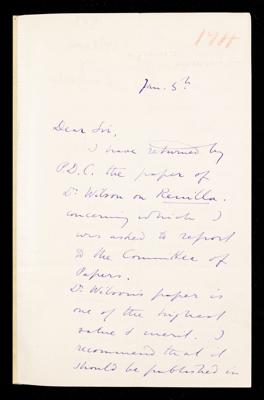 Jan. 5th
Dear Sir,
I have returned by
P.D.C. the paper of
Dr Wilson on Renilla.
concerning which I
was asked to report
to the Committee of
Papers.
Dr Wilson's paper is
one of the highest
value & merit. I
recommend that it
should be published in